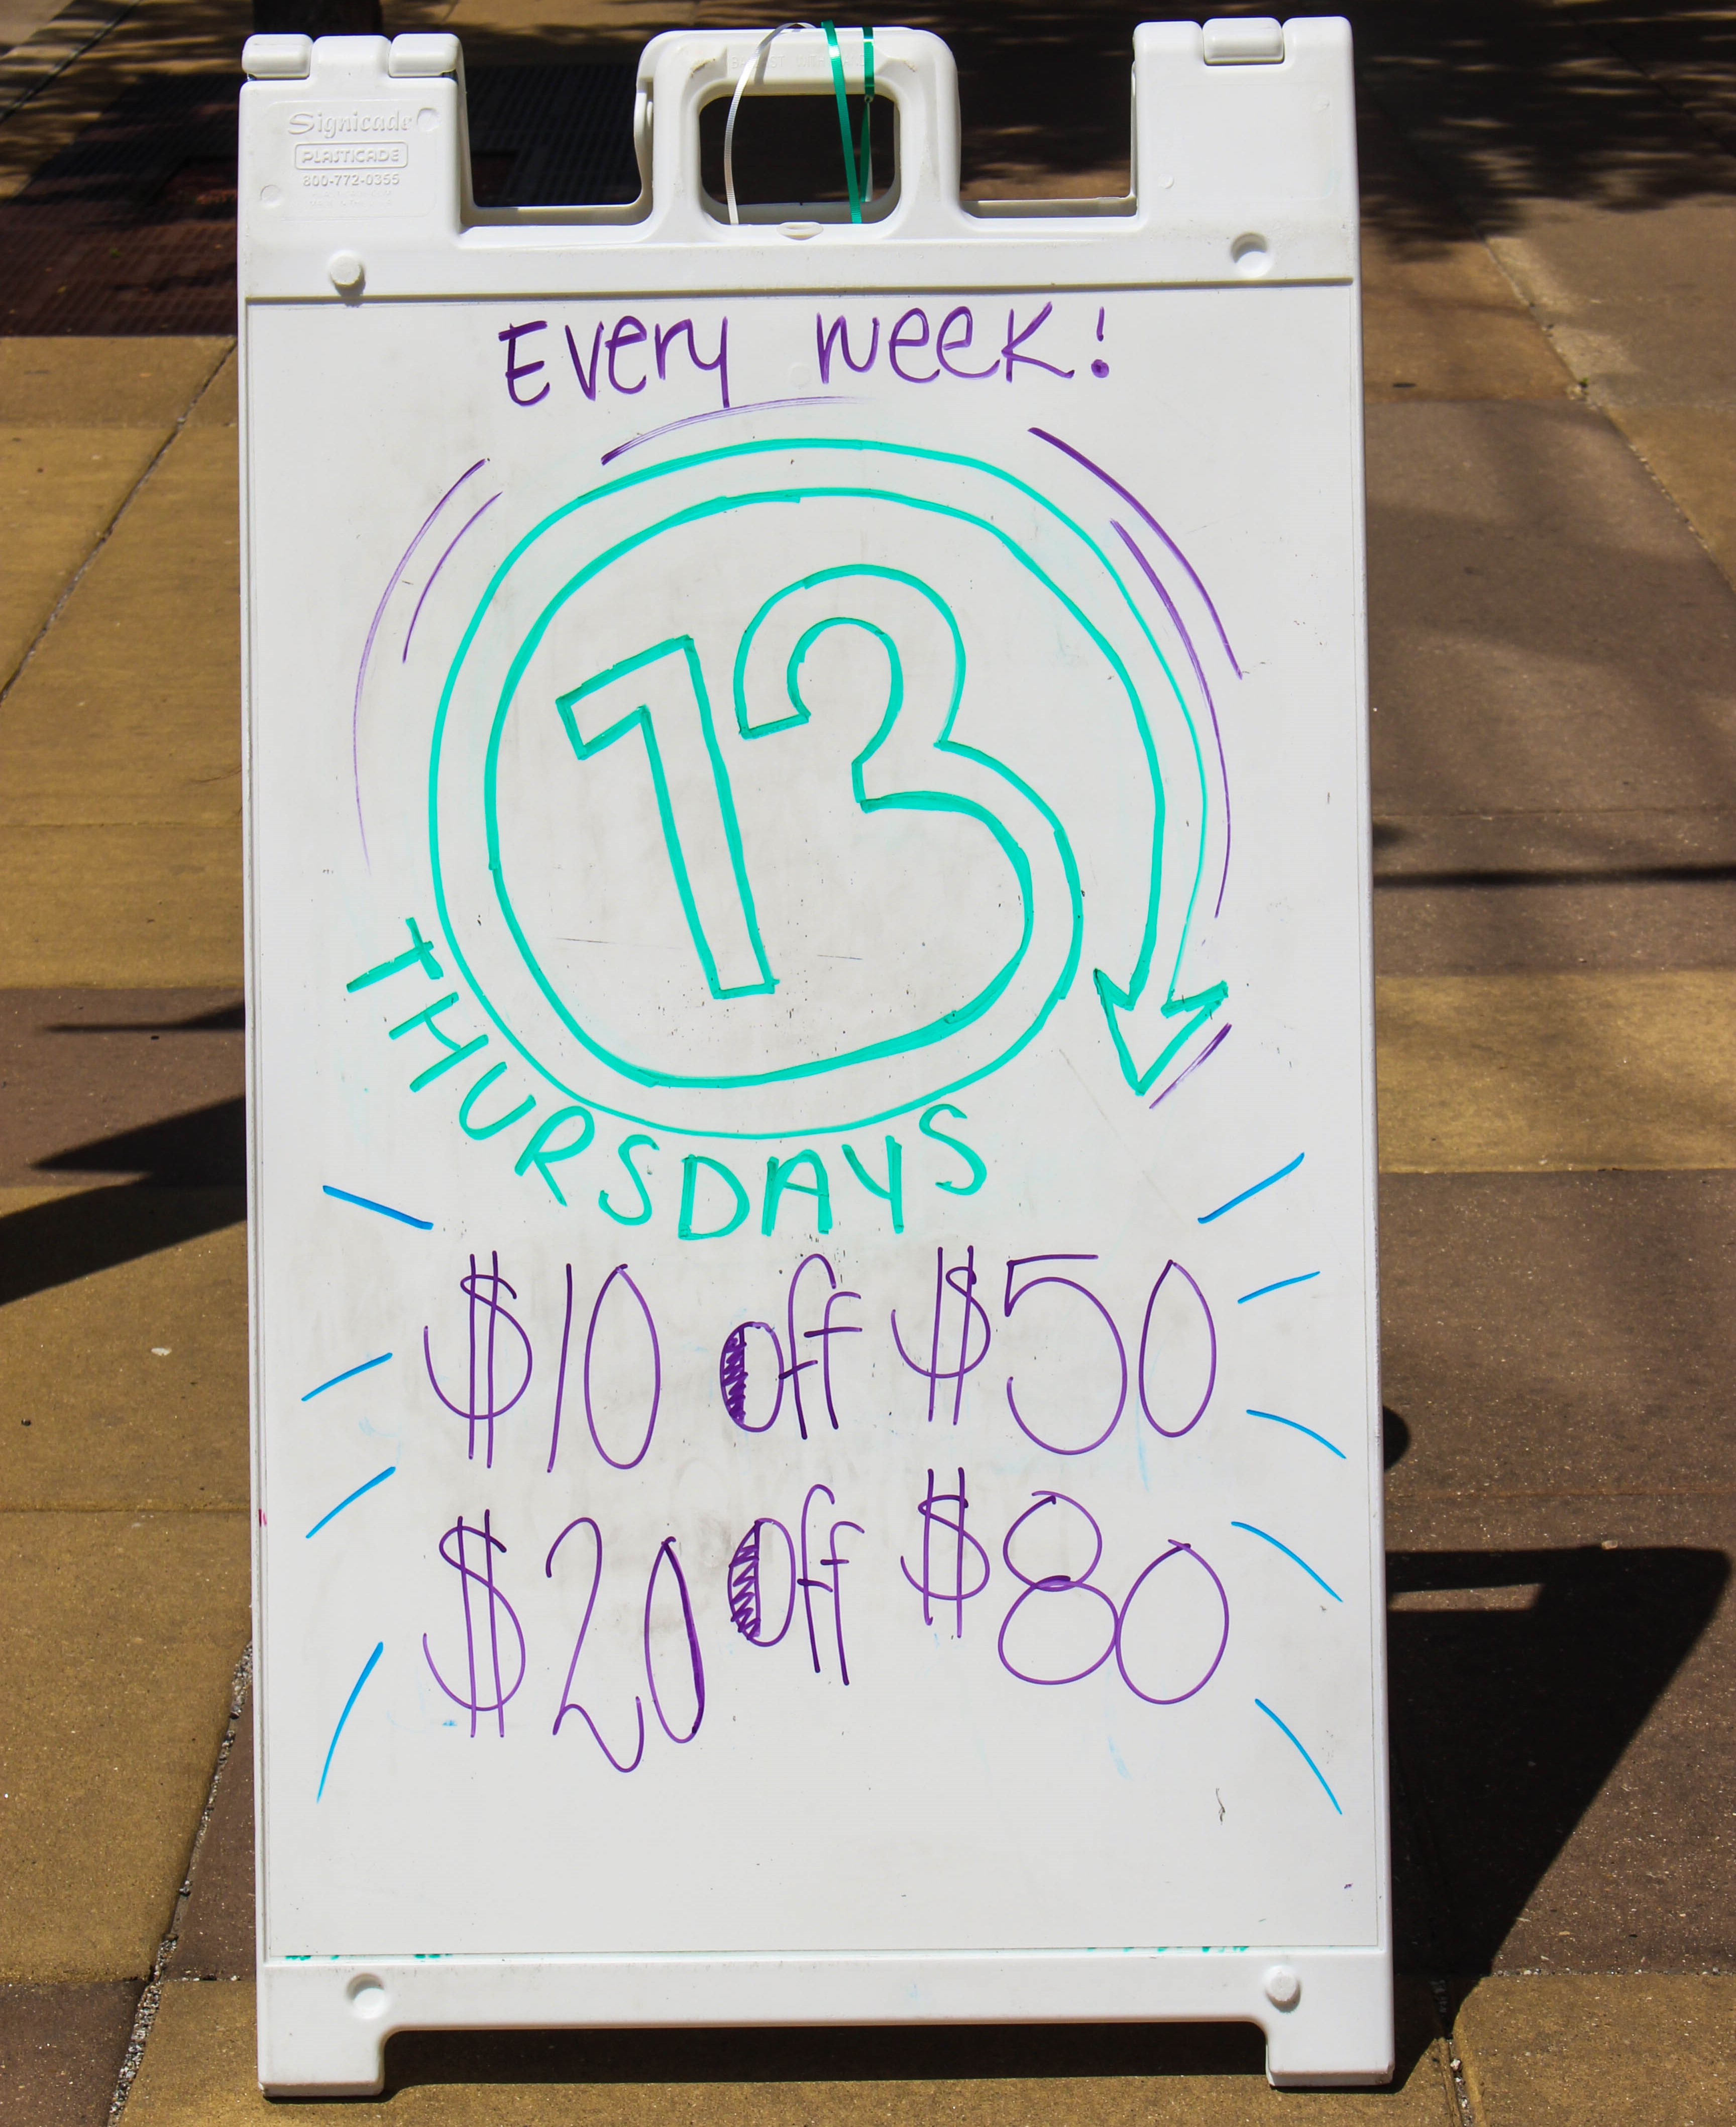 Signicade
PLASTICADE
800-772-0355
Every week!
13
THURSDAYS
$10 off $50
$20 off $80